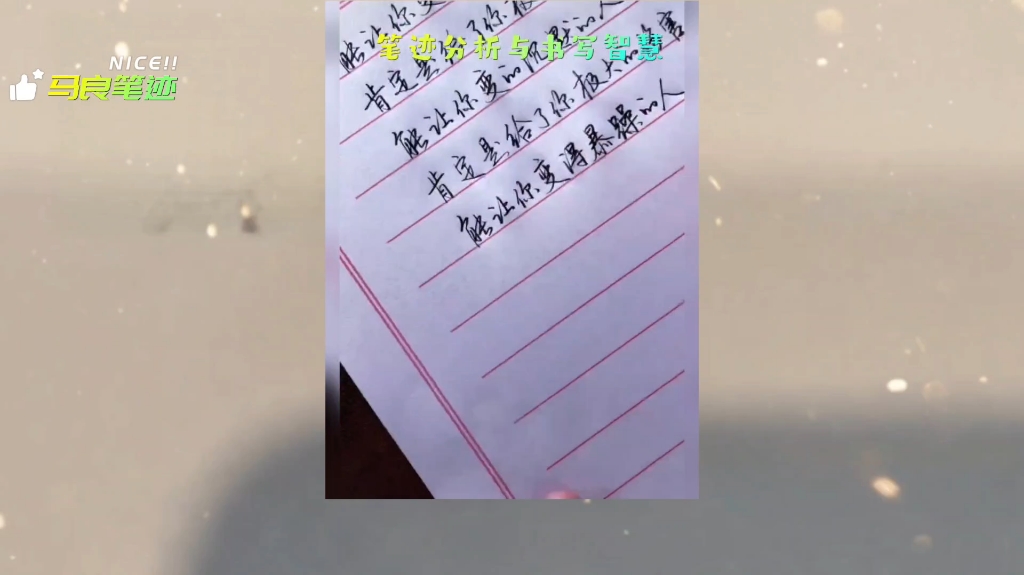 NICE!!
马良笔迹
笔迹分析与书写智慧
能让你变
肯定是给了你极大的害
能让你变的沉默的人
肯定是给了你极大的害
能让你变得暴躁的人